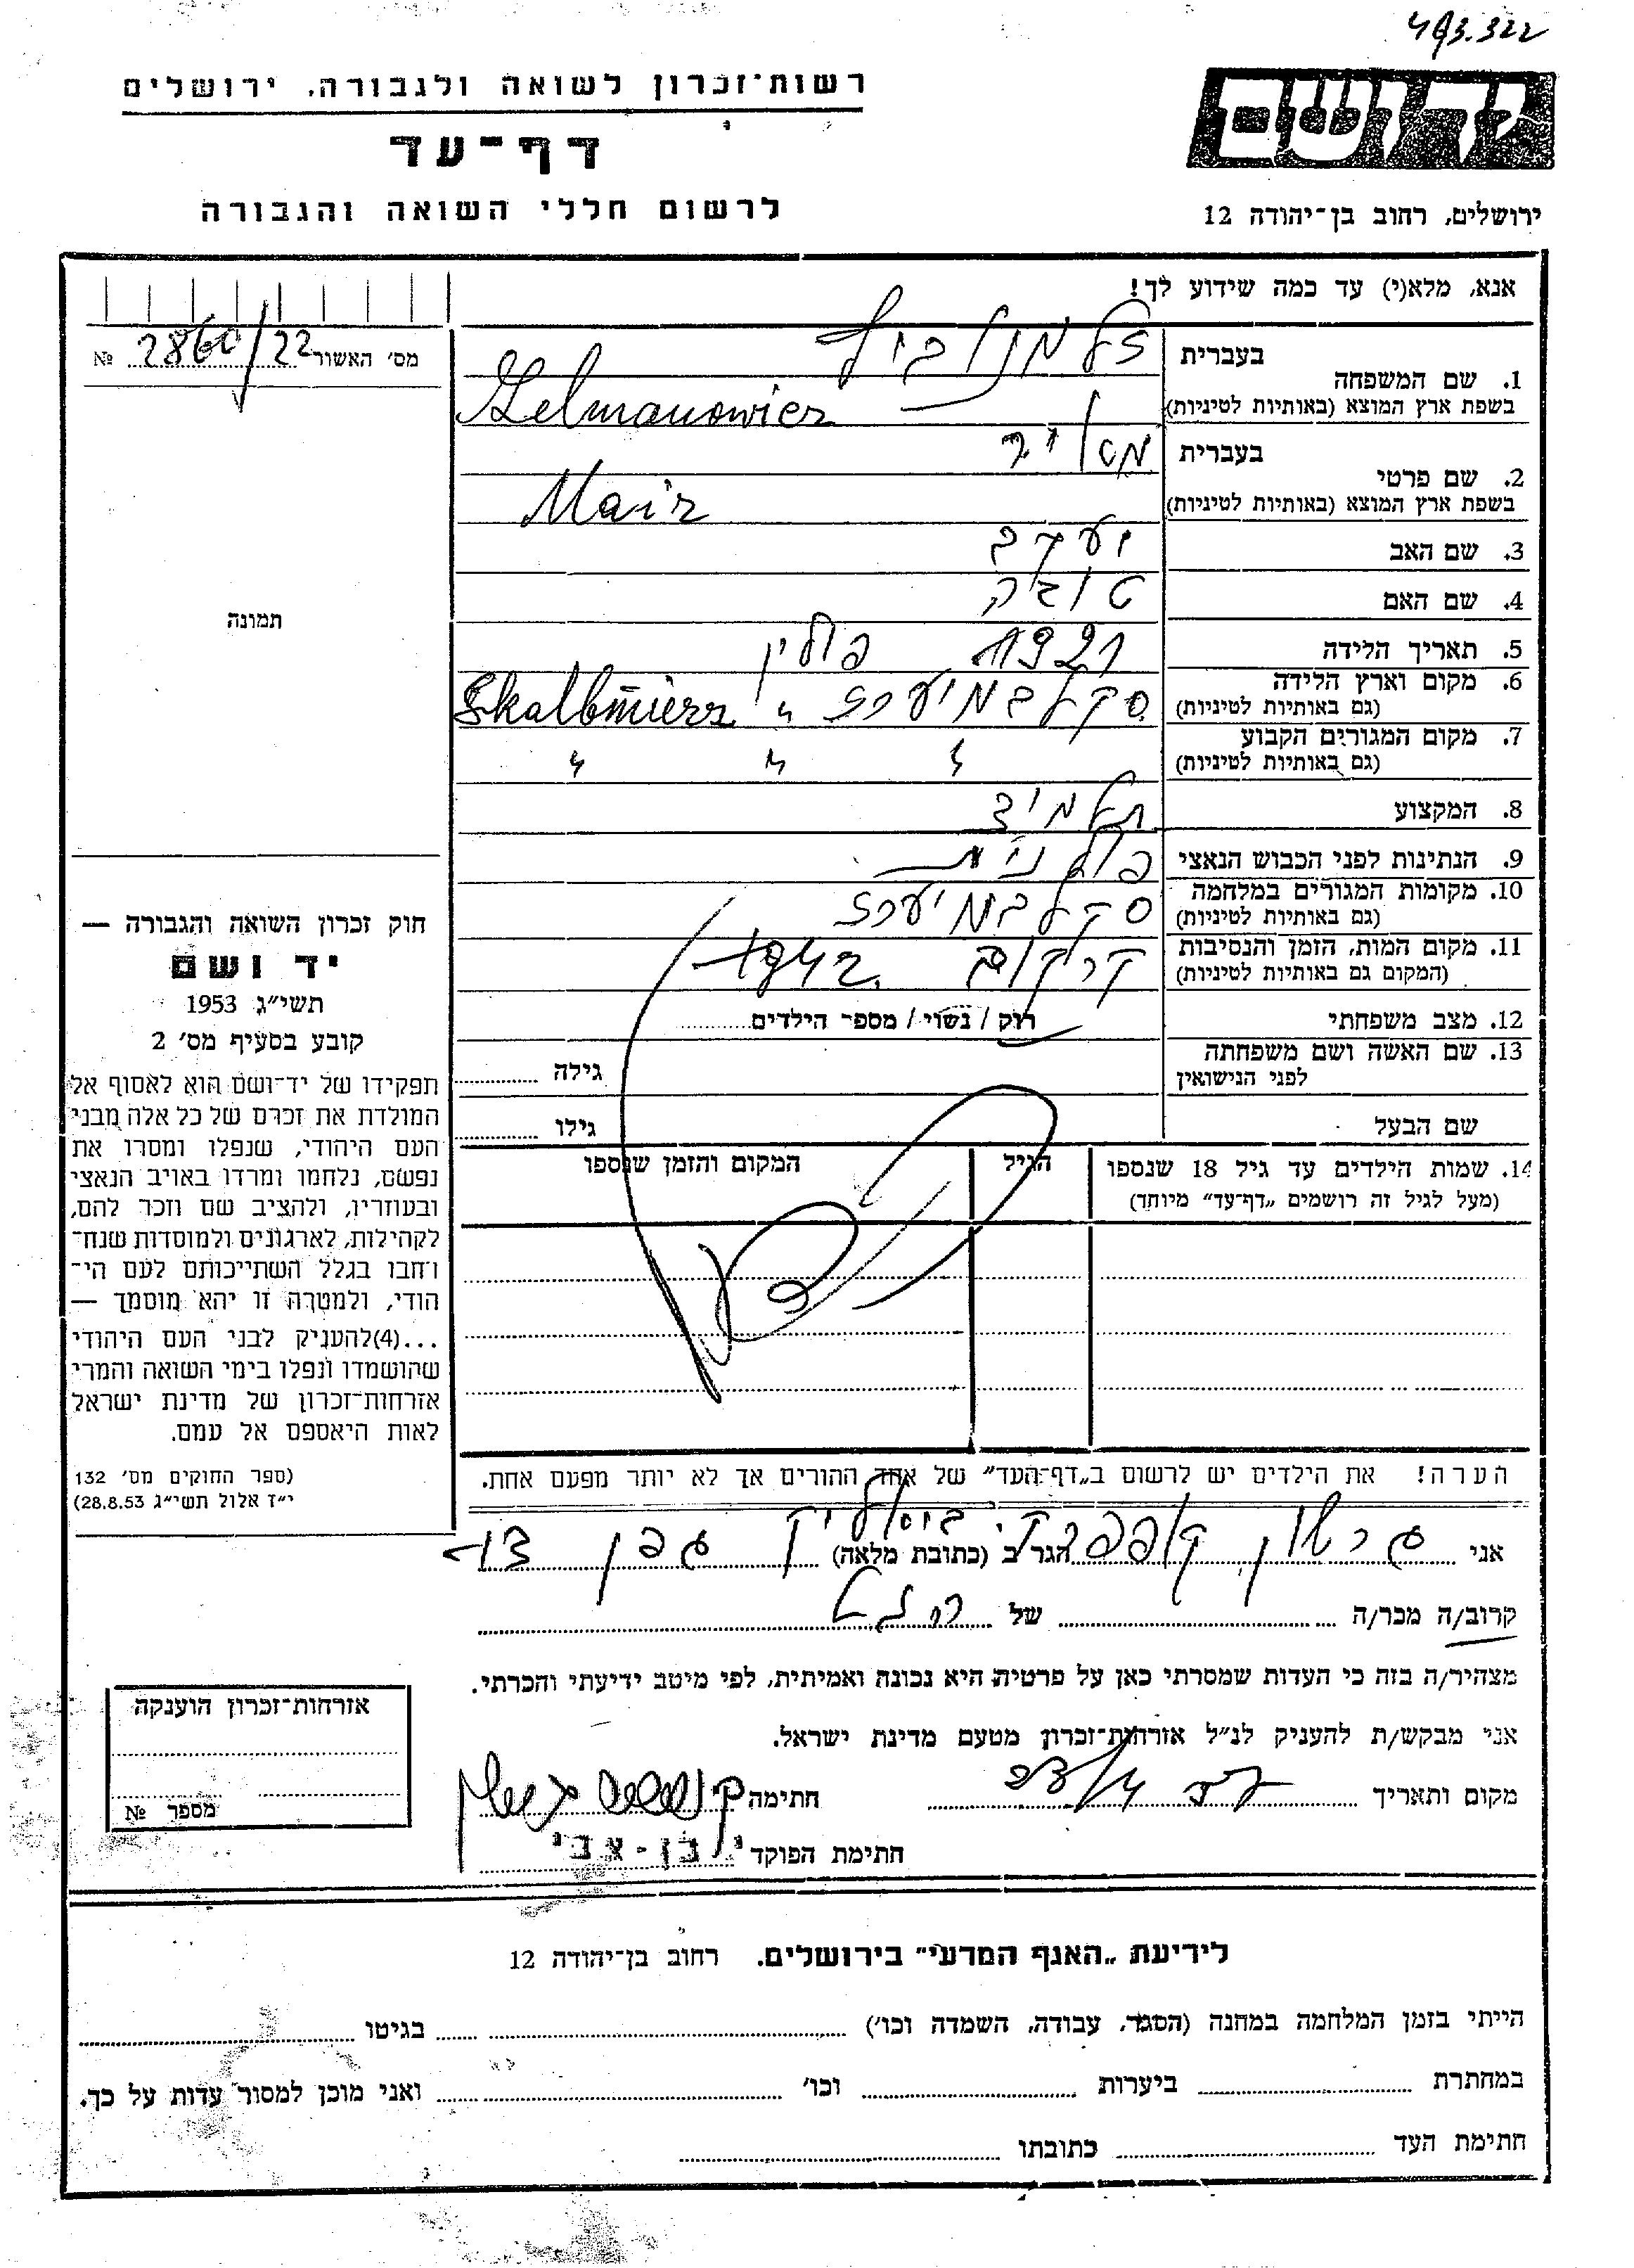 493.322
רשות־זכרון לשואה ולגבורה, ירושלים
דף־עד
לרשום חללי השואה והגבורה
יד ושם
ירושלים, רחוב בן־יהודה 12
אנא, מלא(י) עד כמה שידוע לך!
מס׳ האשור 2860/22 №
1. שם המשפחה
בעברית זלמנוביץ
בשפת ארץ המוצא (באותיות לטיניות) Zelmanowicz
2. שם פרטי
בעברית מאיר
בשפת ארץ המוצא (באותיות לטיניות) Mair
3. שם האב יעקב
4. שם האם טובה
5. תאריך הלידה 1921 פולין
6. מקום וארץ הלידה סקלבמיערז " Skalbmierz
(גם באותיות לטיניות)
7. מקום המגורים הקבוע " " "
(גם באותיות לטיניות)
8. המקצוע תלמיד
9. הנתינות לפני הכבוש הנאצי פולנית
10. מקומות המגורים במלחמה סקלבמיערז
(גם באותיות לטיניות)
11. מקום המות, הזמן והנסיבות קרקוב 1942
(המקום גם באותיות לטיניות)
12. מצב משפחתי רוק / נשוי / מספר הילדים
13. שם האשה ושם משפחתה גילה
לפני הנישואין
שם הבעל גילו
14. שמות הילדים עד גיל 18 שנספו הגיל המקום והזמן שנספו
(מעל לגיל זה רושמים „דף־עד” מיוחד)
תמונה
חוק זכרון השואה והגבורה —
יד ושם
תשי״ג 1953
קובע בסעיף מס׳ 2
תפקידו של יד־ושם הוא לאסוף אל
המולדת את זכרם של כל אלה מבני
העם היהודי, שנפלו ומסרו את
נפשם, נלחמו ומרדו באויב הנאצי
ובעוזריו, ולהציב שם וזכר להם,
לקהילות, לארגונים ולמוסדות שנח־
רבו בגלל השתייכותם לעם הי־
הודי, ולמטרה זו יהא מוסמך —
...(4)להעניק לבני העם היהודי
שהושמדו ונפלו בימי השואה והמרי
אזרחות־זכרון של מדינת ישראל
לאות היאספם אל עמם.
(ספר החוקים מס׳ 132
י״ז אלול תשי״ג 28.8.53)
הערה! את הילדים יש לרשום ב„דף־העד” של אחד ההורים אך לא יותר מפעם אחת.
אני גרשון הגר ב (כתובת מלאה) גפן
קרוב/ה מכר/ה של
מצהיר/ה בזה כי העדות שמסרתי כאן על פרטיה היא נכונה ואמיתית, לפי מיטב ידיעתי והכרתי.
אני מבקש/ת להעניק לנ״ל אזרחות־זכרון מטעם מדינת ישראל.
מקום ותאריך חתימה
חתימת הפוקד י. בן-צבי
אזרחות־זכרון הוענקה
מספר №
לידיעת „האגף המדעי” בירושלים. רחוב בן־יהודה 12
הייתי בזמן המלחמה במחנה (הסגר, עבודה, השמדה וכו׳) בגיטו
במחתרת ביערות וכו׳ ואני מוכן למסור עדות על כך.
חתימת העד כתובתו